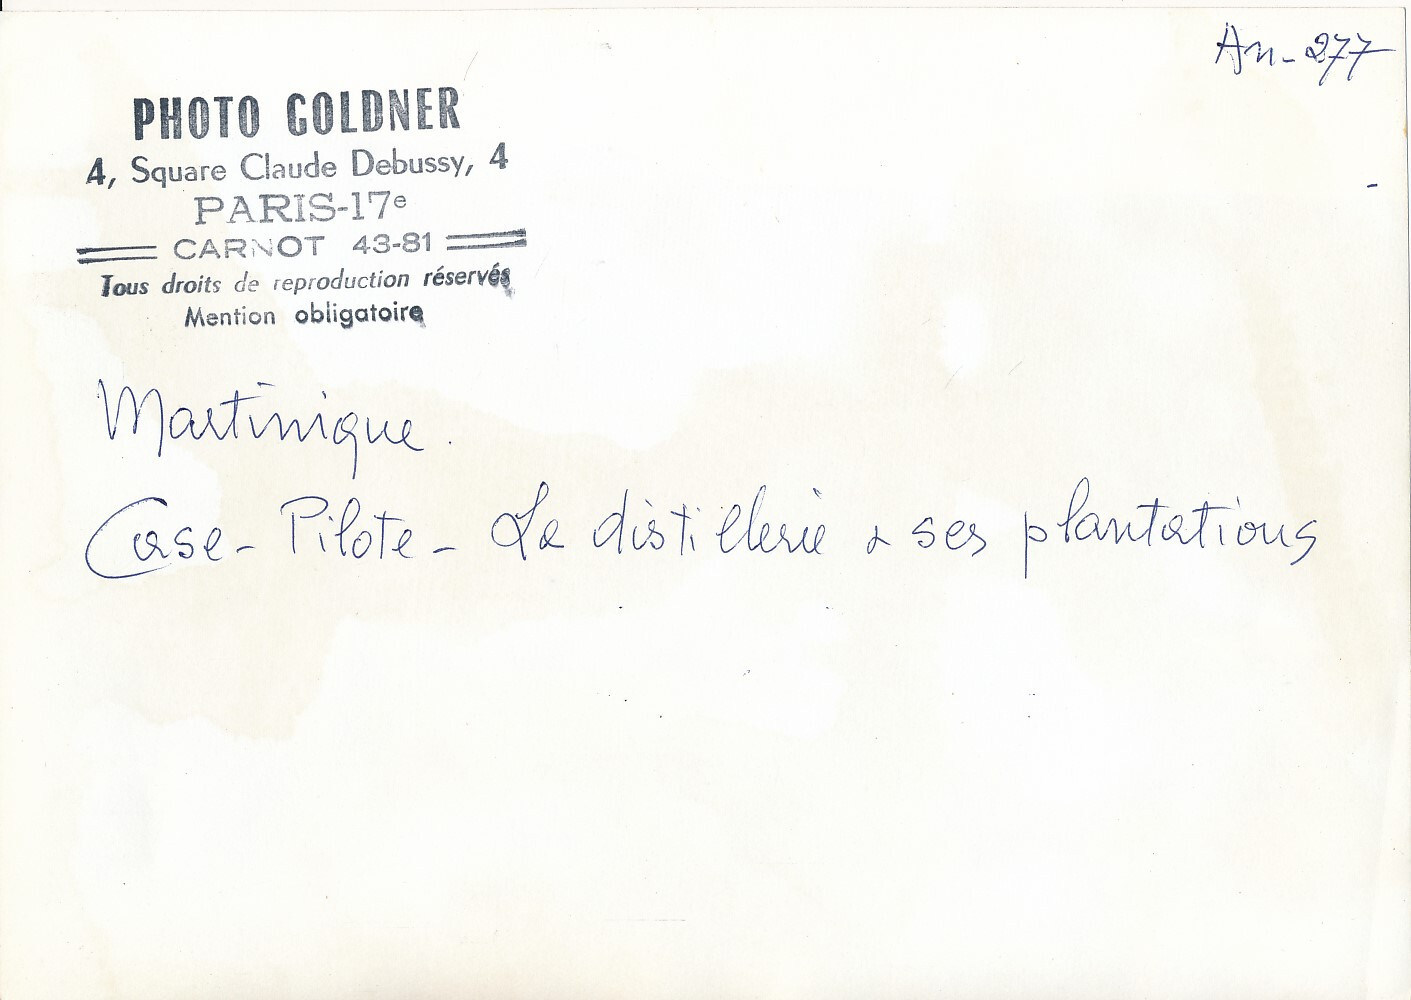 An-277
PHOTO GOLDNER
4, Square Claude Debussy, 4
PARIS-17e
CARNOT 43-81
Tous droits de reproduction réservés
Mention obligatoire
Martinique.
Case-Pilote - La distillerie & ses plantations